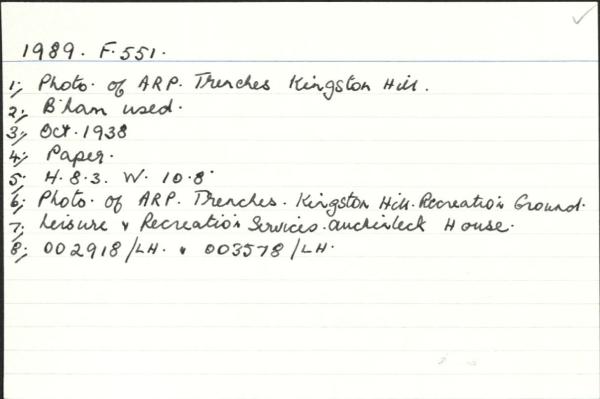 1989. F.551.
1; Photo. of ARP. Trenches Kingston Hill.
2; B'ham used.
3; Oct. 1938
4; Paper.
5; H. 8.3. W. 10.8.
6; Photo. of ARP. Trenches. Kingston Hill. Recreation Ground.
7; Leisure & Recreation Services. Auchinleck House.
8; 002918/LH. & 003578/LH.